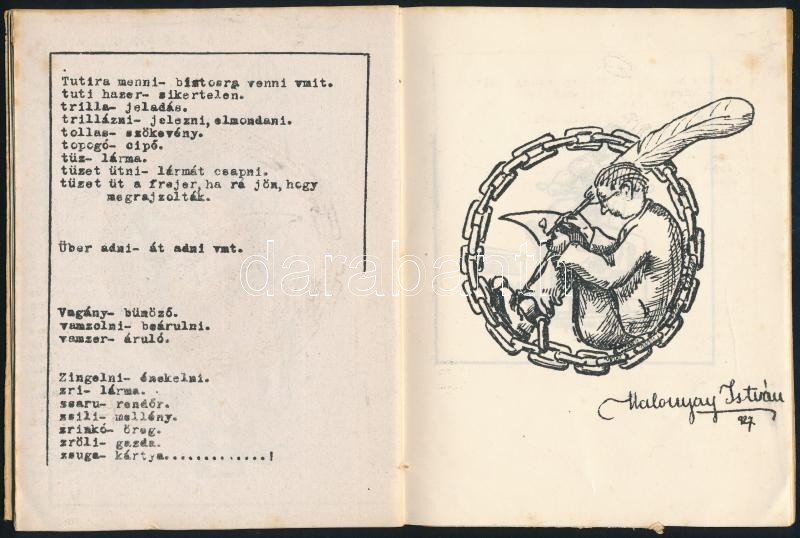 Tutira menni- biztosra venni vmit.
tuti hazer- sikertelen.
trilla- jeladás.
trillázni- jelezni,elmondani.
tollas- szökevény.
topogó- cipő.
tüz- lárma.
tüzet ütni- lármát csapni.
tüzet üt a frejer,ha rá jön,hogy
megrajzolták.
Über adni- át adni vmt.
Vagány- bünöző.
vamzolni- beárulni.
vamzer- áruló.
Zingelni- énekelni.
zri- lárma.
zsaru- rendőr.
zsili- mellény.
zrinkó- öreg.
zröli- gazda.
zsuga- kártya.............!
darabanth
Malonyay István
927.